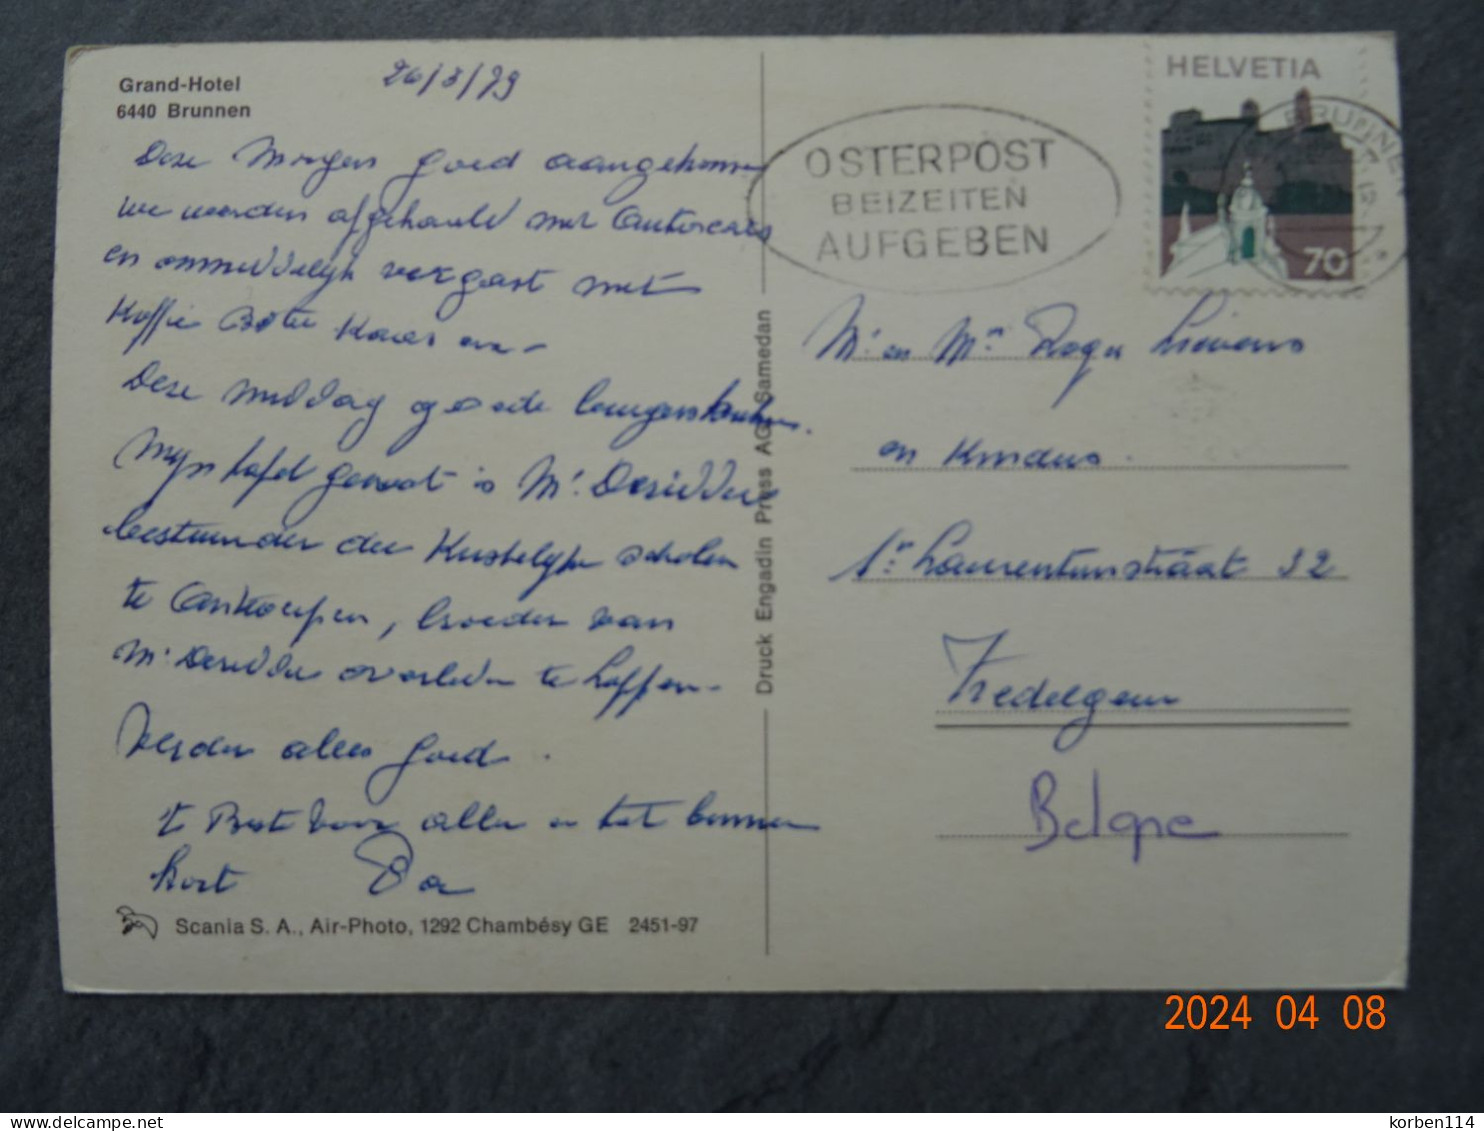 Grand-Hotel
6440 Brunnen
26/3/79
Deze Morgen goed aangekomen
We werden afgehaald met Autocars
en onmiddelijk vergast met
Koffie Boter Kaas enz-
Deze middag goede
Mijn tafel genoot is Mr Deridder
bestuurder der Kristelijke scholen
te Antwerpen, broeder van
Mr Deridder overleden te Loppem-
Verder alles goed.
't Beste voor allen en tot binnen
kort
Scania S. A., Air-Photo, 1292 Chambésy GE 2451-97
Druck Engadin Press AG, Samedan
OSTERPOST
BEIZEITEN
AUFGEBEN
HELVETIA
70
BRUNNEN
Mr en Mme Roger Lievens
en Kinders.
St Laurentiusstraat 32
Zedelgem
Belgie
2024 04 08
delcampe.net
korben114